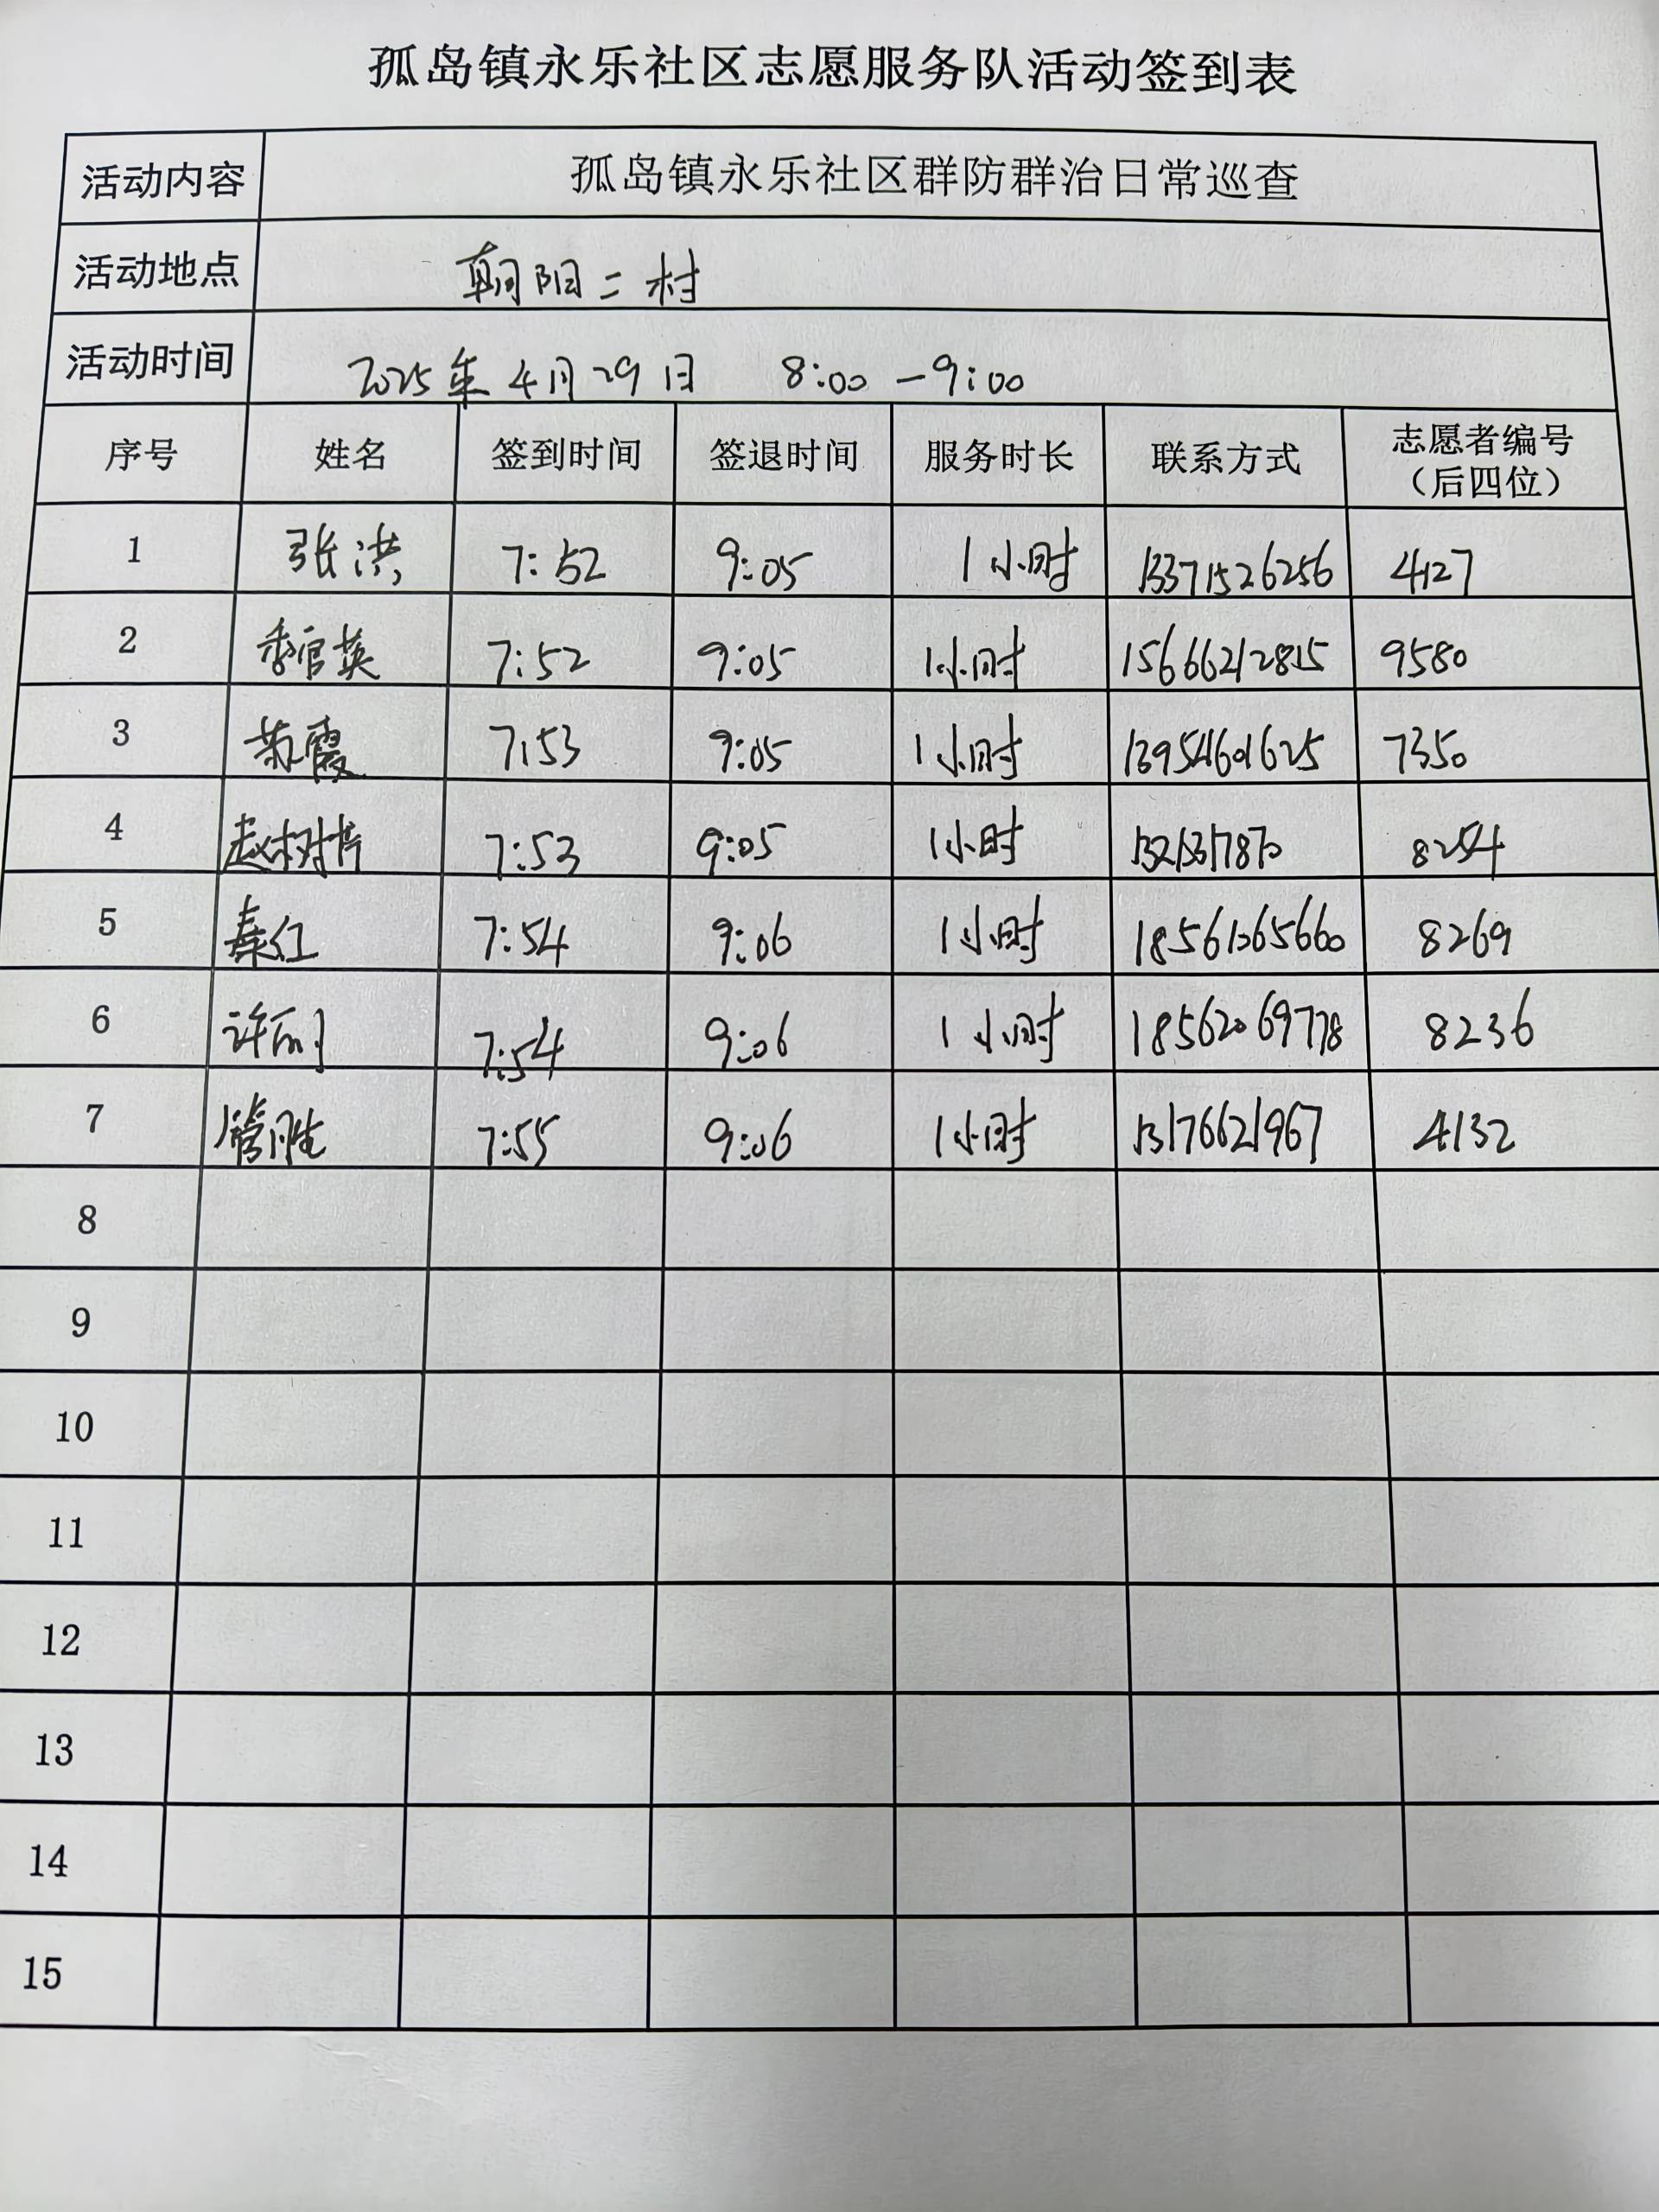 孤岛镇永乐社区志愿服务队活动签到表
活动内容 孤岛镇永乐社区群防群治日常巡查
活动地点 朝阳二村
活动时间 2025年4月29日 8:00-9:00
序号 姓名 签到时间 签退时间 服务时长 联系方式 志愿者编号
（后四位）
1 张洪 7:52 9:05 1小时 13371526256 4127
2 季官英 7:52 9:05 1小时 15666212815 9580
3 7:53 9:05 1小时 13954601625 7350
4 7:53 9:05 1小时 8254
5 秦红 7:54 9:06 1小时 18561065660 8269
6 许丽 7:54 9:06 1小时 18562069778 8236
7 管胜 7:55 9:06 1小时 13176621967 4132
8
9
10
11
12
13
14
15